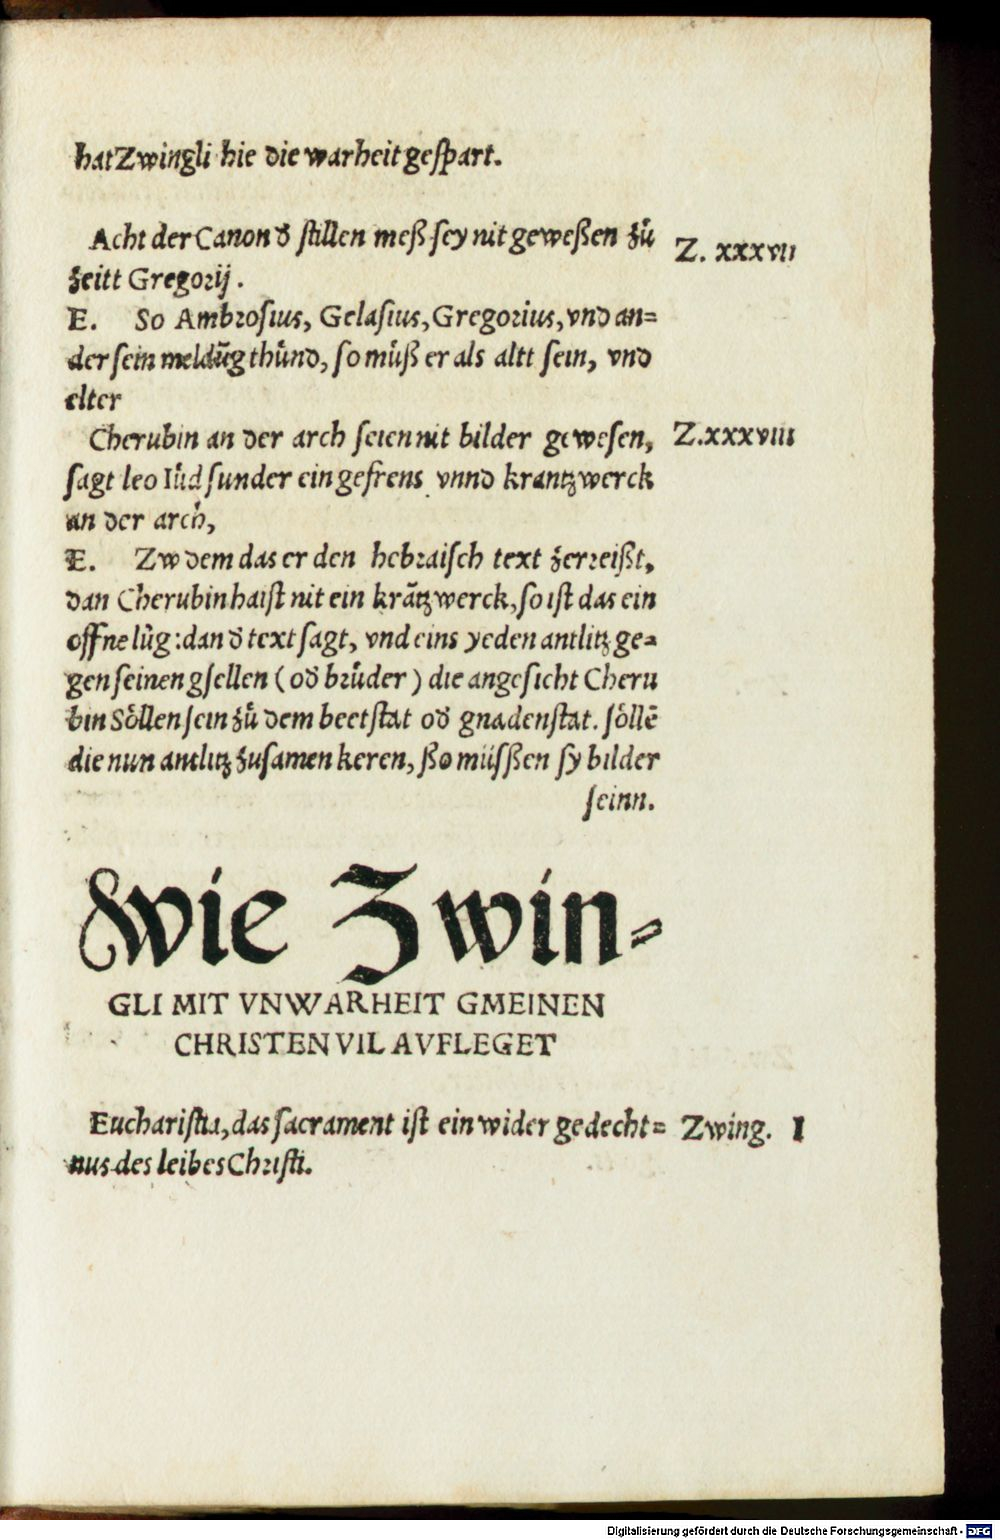 hat Zwingli hie die warheit gespart.
Acht der Canon d̄ stillen meß sey nit geweßen zů
zeitt Gregorij.
Z. xxxvii
E. So Ambrosius, Gelasius, Gregorius, vnd an=
der sein meldūg thůnd, so můß er als altt sein, vnd
elter
Cherubin an der arch seien nit bilder gewesen,
Z. xxxviii
sagt leo Iůd sunder ein gefrens vnnd krantzwerck
an der arch,
E. Zw dem das er den hebraisch text zerreißt,
dan Cherubin haist nit ein krātzwerck, so ist das ein
offne lůg: dan d̄ text sagt, vnd eins yeden antlitz ge=
gen seinen gsellen (od̄ brůder) die angesicht Cheru
bin Söllen sein zů dem beetstat od̄ gnadenstat. söllē
die nun antlitz zusamen keren, ßo müsßen sy bilder
seinn.
Wie Zwin=
GLI MIT VNWARHEIT GMEINEN
CHRISTEN VIL AVFLEGET
Eucharistia, das sacrament ist ein wider gedecht=
Zwing. I
nus des leibes Christi.
Digitalisierung gefördert durch die Deutsche Forschungsgemeinschaft - DFG